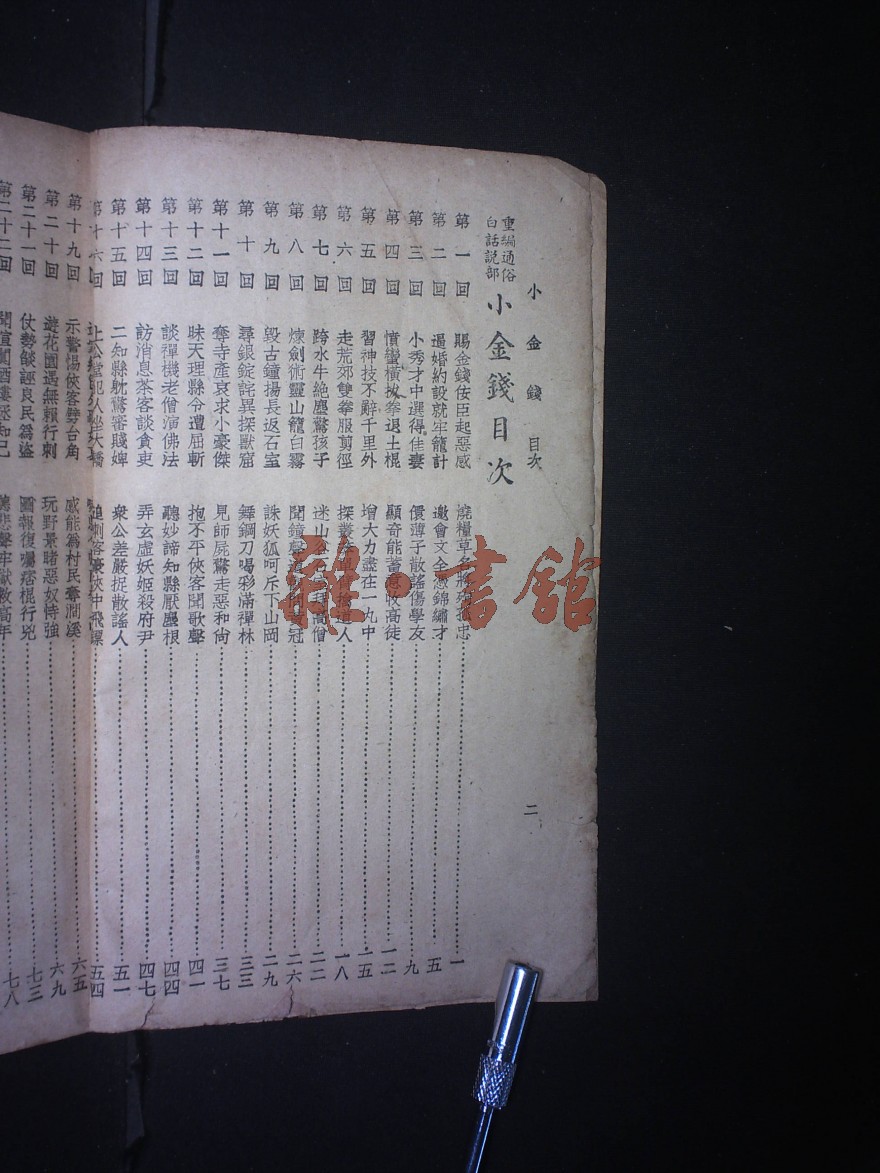 小金錢 目次
二
重編通俗
白話說部
小金錢目次
第一回 賜金錢佞臣起惡感 燒糧草名將殉孤忠 一
第二回 過婚約設就牢籠計 邀會文全憑錦繡才 五
第三回 小秀才中選得佳妻 儇薄子散謠傷學友 九
第四回 憤蠻橫拔拳退土棍 顯奇能蓄意收高徒 一二
第五回 習神技不辭千里外 增大力盡在一九中 一五
第六回 走荒郊雙拳服剪徑 探叢 道人 一八
第七回 跨水牛絕塵驚孩子 迷山 高僧 二二
第八回 煉劍術靈山籠白霧 聞鐘聲 冠 二六
第九回 毀古鐘揚長返石室 誅妖狐呵斥下山岡 二九
第十回 尋銀錠詫異探獸窟 舞鋼刀喝彩滿禪林 三三
第十一回 奪寺產哀求小豪傑 見師屍驚走惡和尙 三七
第十二回 昧天理縣令遭屈斬 抱不平俠客聞歌聲 四一
第十三回 談禪機老僧演佛法 聽妙諦知縣厭塵根 四四
第十四回 訪消息茶客談貪吏 弄玄虛妖姬殺府尹 四七
第十五回 二知縣躭驚審賤婢 衆公差嚴捉散謠人 五一
第十六回 上公堂犯人坐大轎 追刺客豪俠中飛鏢 五四
第十九回 示警惕俠客劈台角 感能爲村民奪澗溪 六五
第二十回 遊花園遇無賴行刺 玩野景賭惡奴恃強 六九
第二十一回 仗勢燄誣良民爲盜 圖報復囑痞棍行兇 七三
第二十二回 鬧酒樓 知己 牢獄救高年 七八
雜·書館